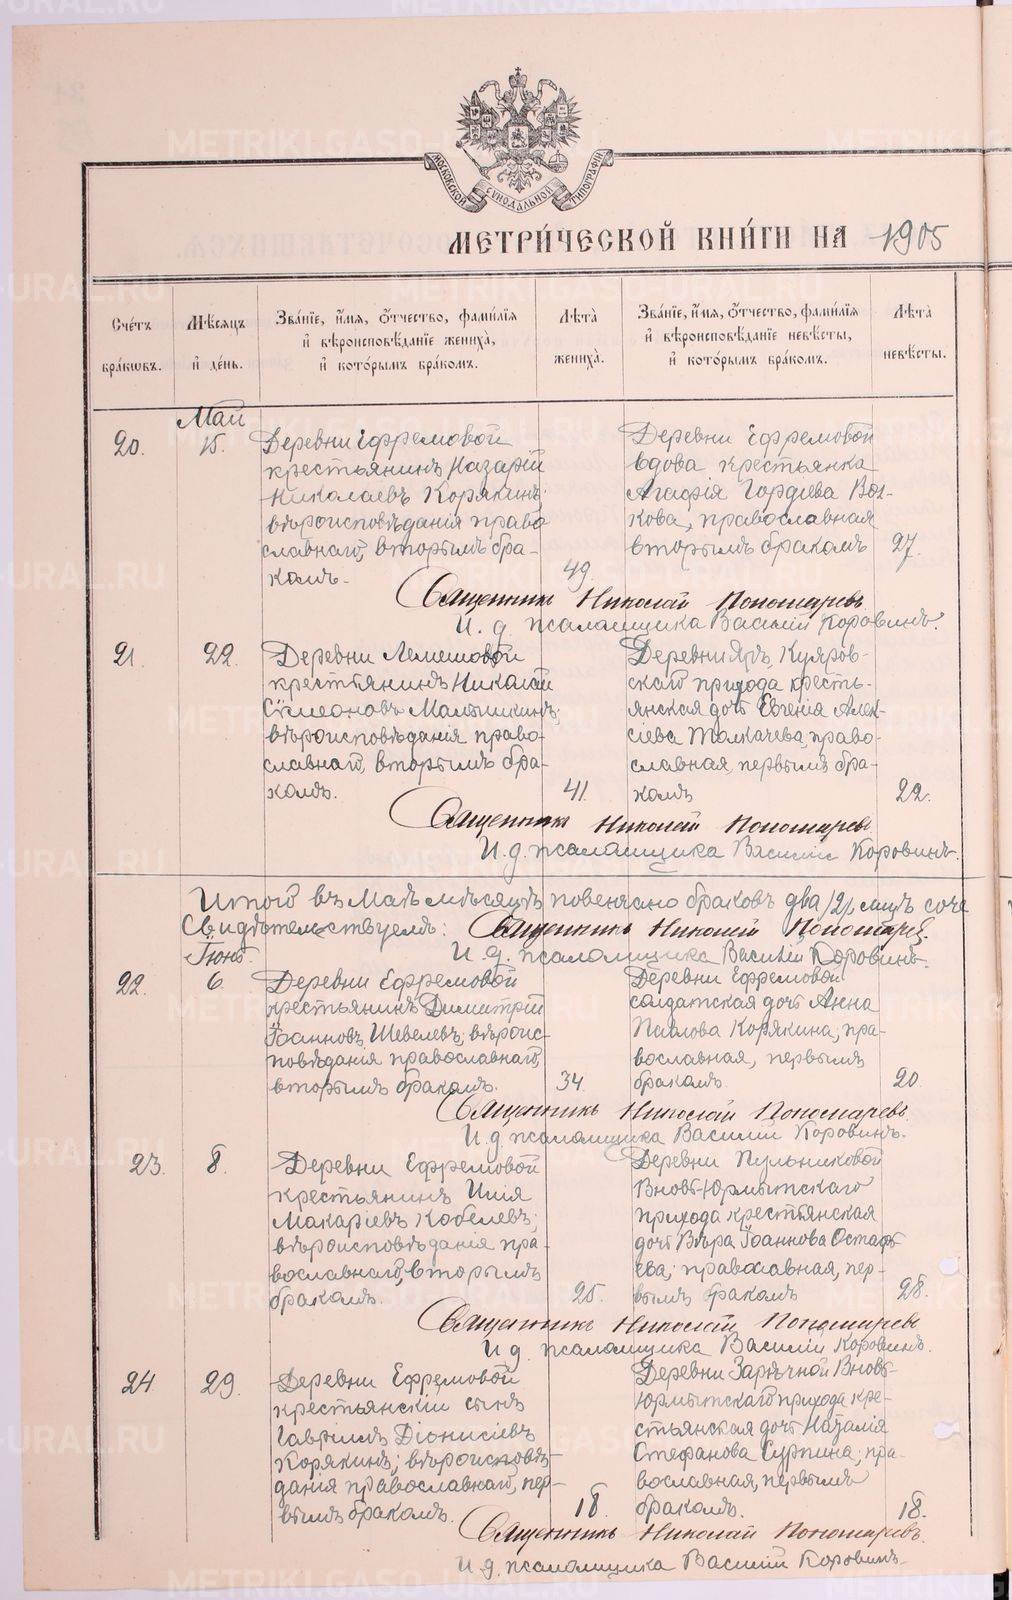 МОСКОВСКОЙ СѴНОДАЛЬНОЙ ТИПОГРАФІИ
МЕТРИ́ЧЕСКОЙ КНИ́ГИ НА 1905
Сче́тъ бра́кѡвъ.
Мѣ́сѧцъ и҆ де́нь.
Зва́нїе, и҆́мѧ, ѻ҆́тчество, фами́лїѧ и҆ вѣроисповѣ́данїе жениха̀, и҆ кото́рымъ бра́комъ.
Лѣта̀ жениха̀.
Зва́нїе, и҆́мѧ, ѻ҆́тчество, фами́лїѧ и҆ вѣроисповѣ́данїе невѣ́сты, и҆ кото́рымъ бра́комъ.
Лѣта̀ невѣ́сты.
Май
20. 15.
Деревни Ефремовой
крестьянинъ Назарій
Николаевъ Корякинъ;
вѣроисповѣданія право
славнаго, вторымъ бра-
комъ.
49.
Деревни Ефремовой
вдова крестьянка
Агафія Гордіева Вол-
кова, православная
вторымъ бракомъ
27.
Священникъ Николай Пономаревъ
И. д. псаломщика Василій Коровинъ.
21. 22.
Деревни Лемешовой
крестьянинъ Николай
Симеоновъ Мамышкинъ;
вѣроисповѣданія право-
славнаго, вторымъ бра-
комъ.
41.
Деревни Яръ, Куяров-
скаго прихода кресть-
янская дочь Евгенія Алек-
сіева Толкачева, право-
славная, первымъ бра-
комъ
22.
Священникъ Николай Пономаревъ
И. д. псаломщика Василій Коровинъ.
Итого въ Маѣ мѣсяцѣ повенчано браковъ два /2/ лицъ соче
Свидѣтельствуемъ: Священникъ Николай Пономарев.
И. д. псаломщика Василій Коровинъ.
Іюнь.
22. 6.
Деревни Ефремовой
крестьянинъ Димитрій
Іоанновъ Шевелевъ; вѣроис-
повѣданія православнаго,
вторымъ бракомъ.
34.
Деревни Ефремовой
солдатская дочь Анна
Павлова Корякина, пра-
вославная, первымъ
бракомъ.
20
Священникъ Николай Пономаревъ.
И. д. псаломщика Василій Коровинъ.
23. 8.
Деревни Ефремовой
крестьянинъ Илія
Макаріевъ Кобелевъ;
вѣроисповѣданія пра-
вославнаго, вторымъ
бракомъ.
25.
Деревни Пульниковой
Вновь-Юрмытскаго
прихода крестьянская
дочь Вѣра Іоаннова Остафь
ева; православная, пер-
вымъ бракомъ
28.
Священникъ Николай Пономаревъ
И д. псаломщика Василій Коровинъ.
24 29.
Деревни Ефремовой
крестьянскій сынъ
Гавріилъ Діонисіевъ
Корякинъ; вѣроисповѣ-
данія православнаго, пер-
вымъ бракомъ.
18.
Деревни Зарѣчной Вновь-
Юрмытскаго прихода кре-
стьянская дочь Наталія
Стефанова Сурпина; пра-
вославная, первымъ
бракомъ.
18.
Священникъ Николай Пономаревъ.
И д. псаломщика Василій Коровинъ.
METRIKI.GASO-URAL.RU